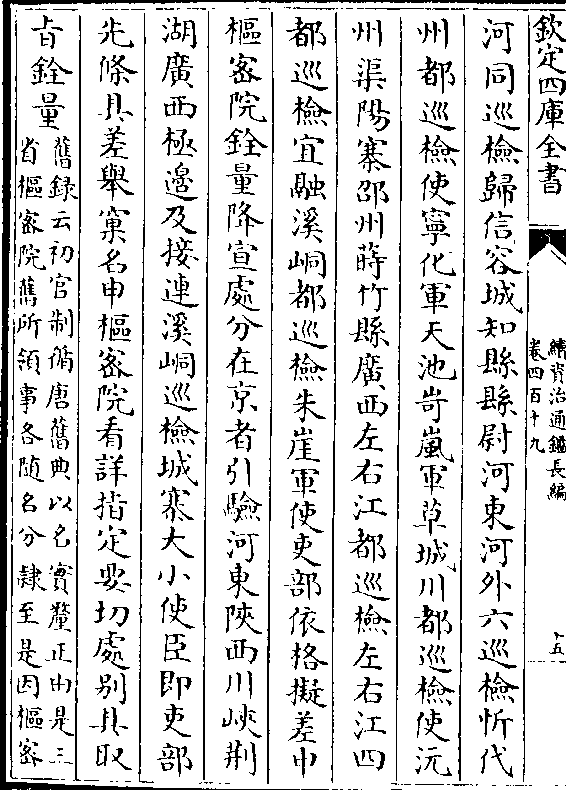 欽定四庫全書
續資治通鑑長編
卷四百十九
十五
河同巡檢歸信容城知縣縣尉河東河外六巡檢忻代
州都巡檢使寧化軍天池岢嵐軍草城川都巡檢使沅
州渠陽寨邵州蒔竹縣廣西左右江都巡檢左右江四
都巡檢宜融溪峒都巡檢朱崖軍使吏部依格擬差申
樞密院銓量降宣處分在京者引驗河東陝西川峽荆
湖廣西極邊及接連溪峒巡檢城寨大小使臣即吏部
先條具差舉窠名申樞密院看詳指定要切處别具取
㫖銓量
舊録云初官制脩唐舊典以名實釐正由是三
省樞密院舊所領事各随名分隷至是因樞密